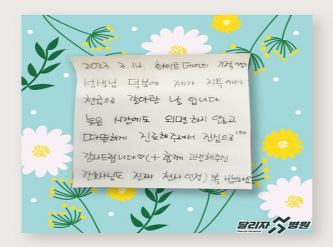 2023. 3. 14. 화이트데이의 기적
선생님 덕분에 제가 지옥에서
천국으로 갈아탄 날 입니다.
늦은 시간에도 외면하지 않고
따뜻하게 진료해주셔서 진심으로
감사드립니다♡(+ 함께 고생해주신
간호사님도 진짜 천사
달리자병원